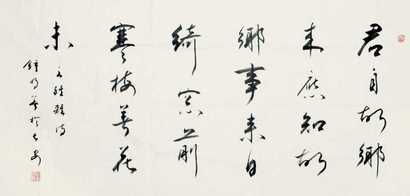 君自故鄉
来應知故
鄉事来日
綺窗前
寒梅著花
未 王維雜詩
鍾明善於長安